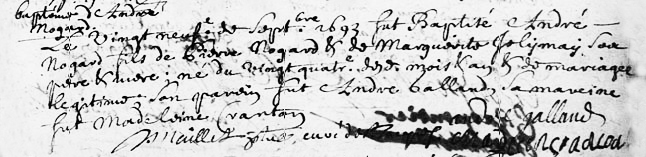 baptême d'André
Nogard
Le vingt neuf.e de Sept.bre 1693 fut Baptisé André
Nogard fils de Pierre Nogard & de Marguerite Jolymay ses
père & mere; né du vingt quat.e desd. mois & an & de mariage
legitime. Son parein fut André Galland. a mareine
fut Madeleine
galland
Maillet curé de